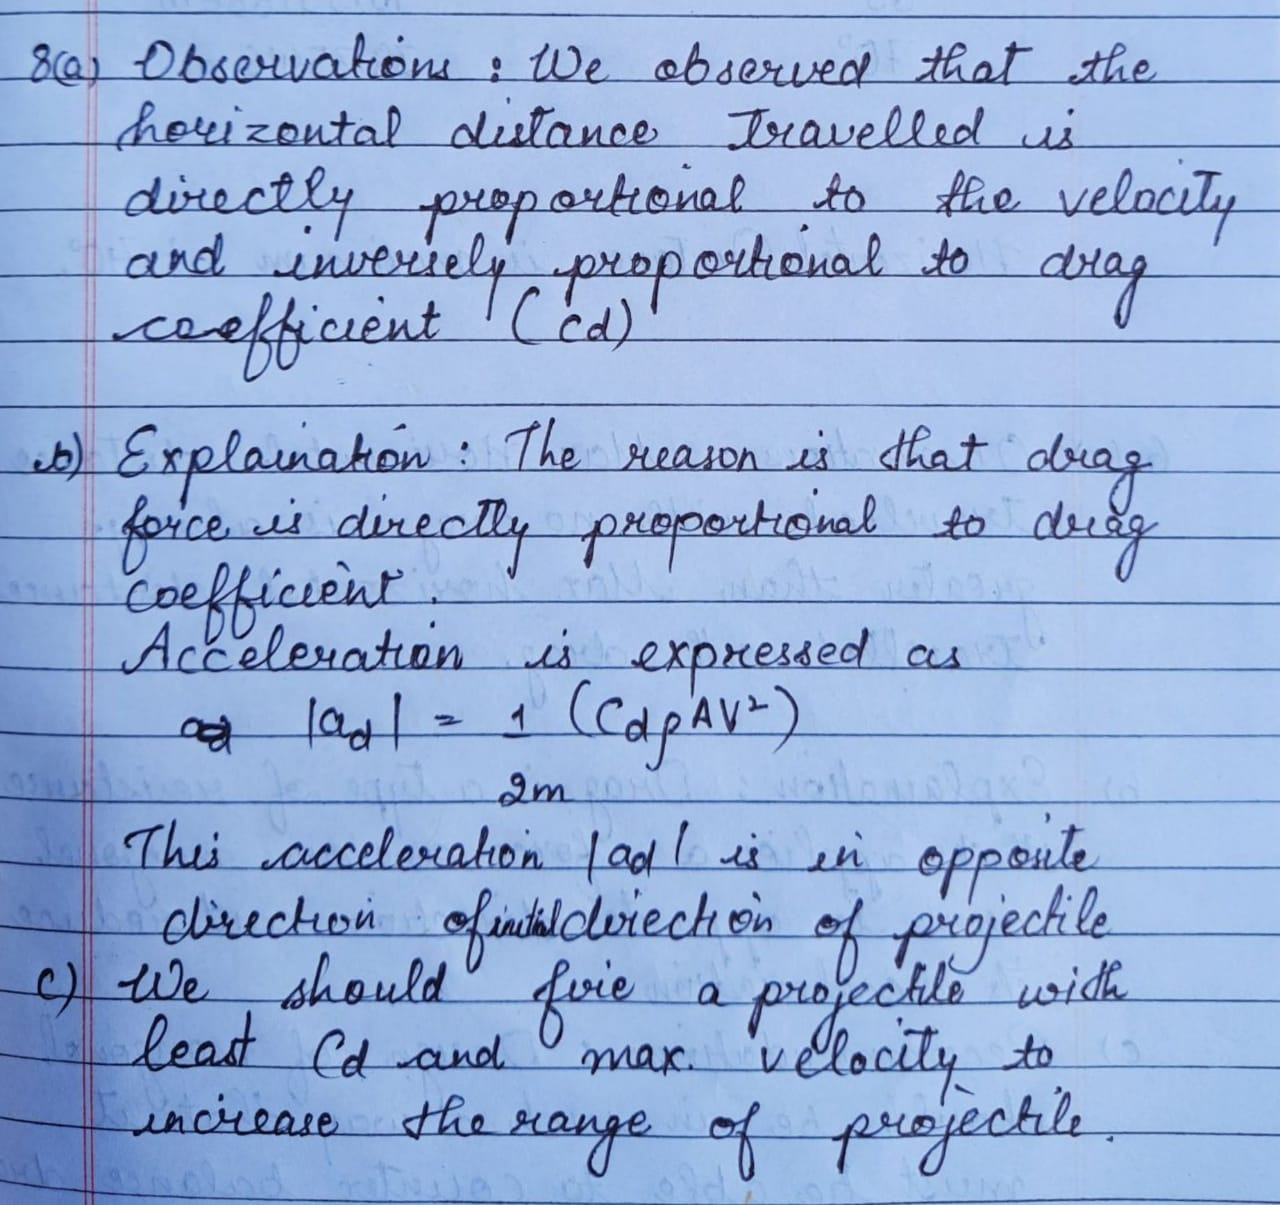 8(a) Observations : We observed that the
horizontal distance Travelled is
directly proportional to the velocity
and inversely proportional to drag
coefficient (Cd)
b) Explaination : The reason is that drag
force is directly proportional to drag
coefficient.
Acceleration is expressed as
|ad| = 1 (CdρAV²)
2m
This acceleration |ad| is in opposite
direction of initial direction of projectile
c) We should fire a projectile with
least Cd and max. velocity to
increase the range of projectile.